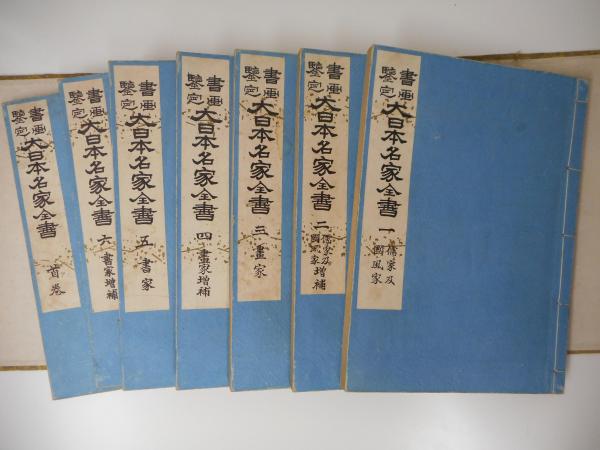 書画鑒定
大日本名家全書
一 儒家及國風家
書画鑒定
大日本名家全書
二 儒家及國風家増補
書画鑒定
大日本名家全書
三 畫家
書画鑒定
大日本名家全書
四 畫家増補
書画鑒定
大日本名家全書
五 書家
書画鑒定
大日本名家全書
六 書家増補
書画鑒定
大日本名家全書
首巻